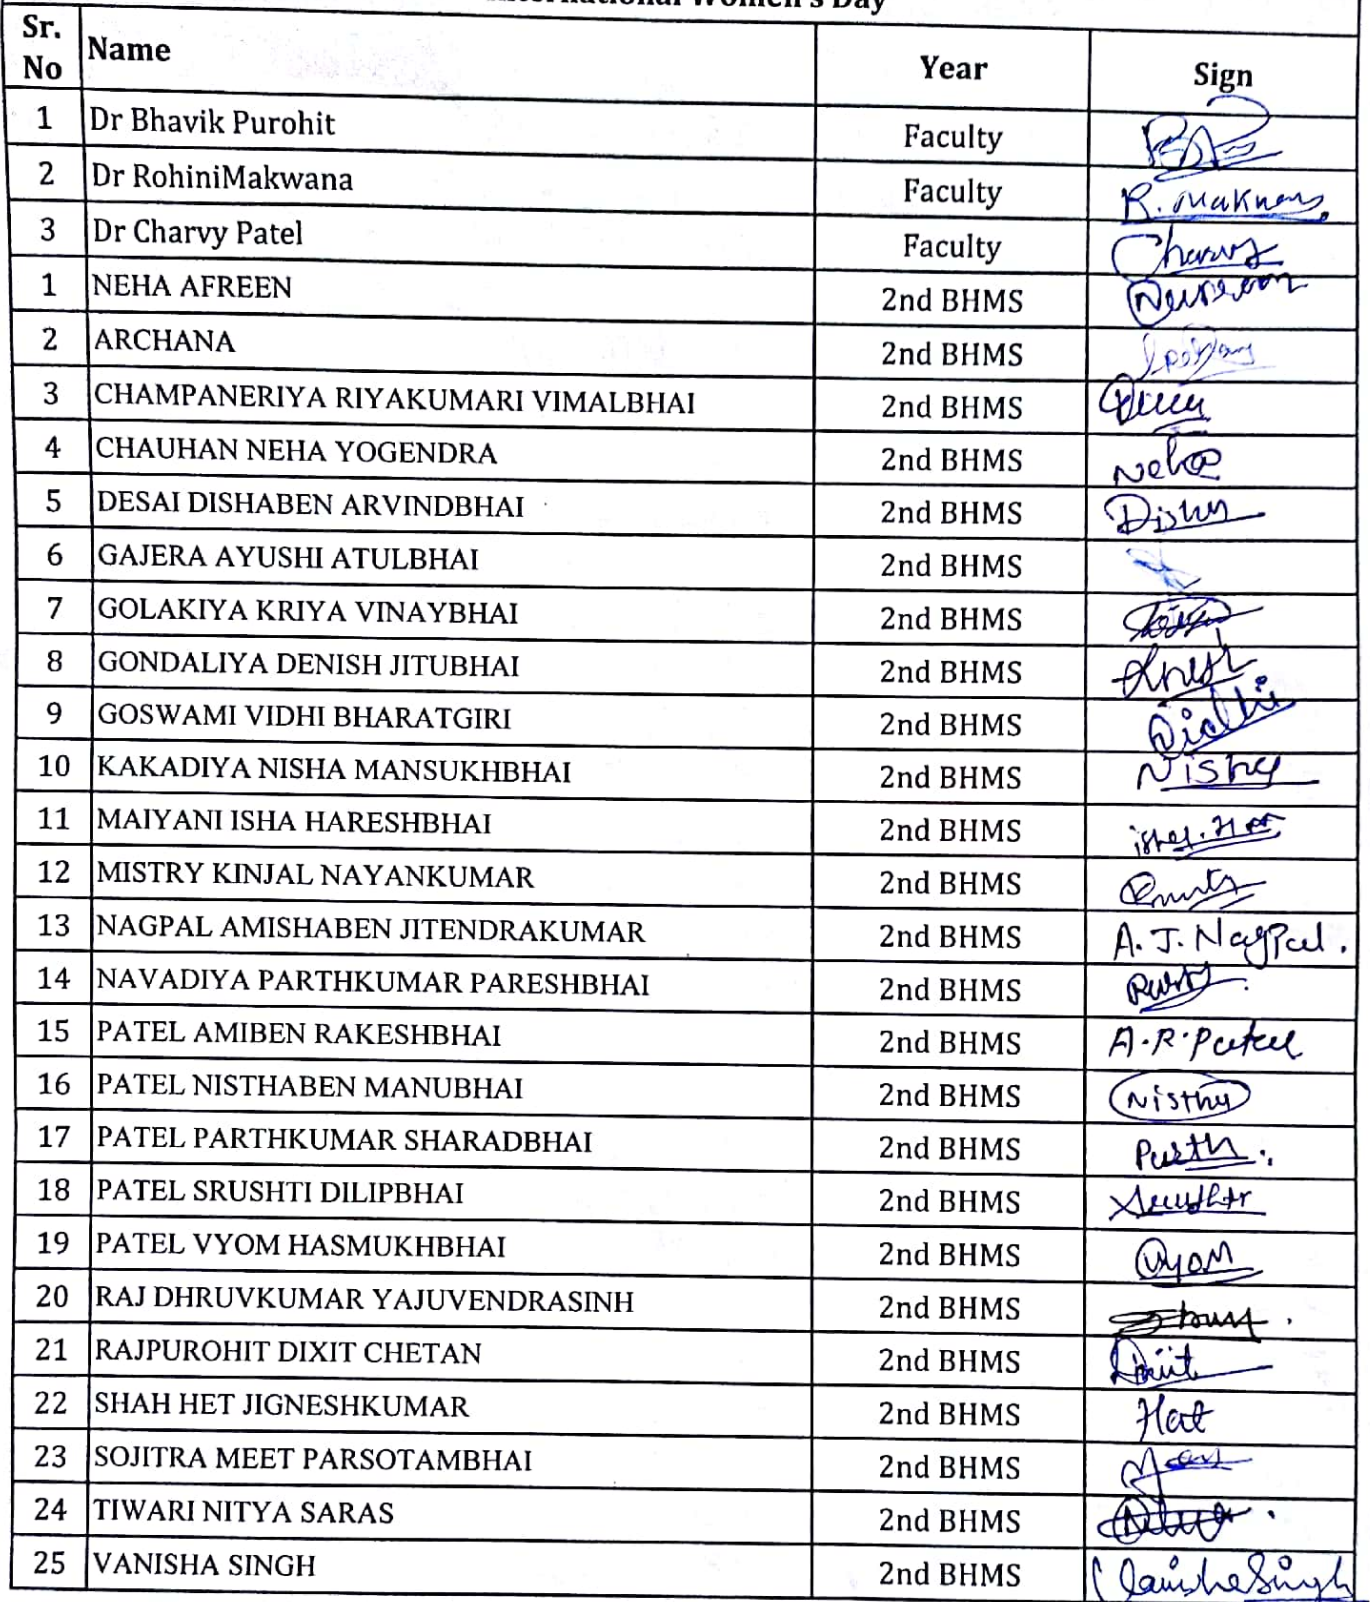 Women's Day
Sr. No Name Year Sign
1 Dr Bhavik Purohit Faculty
2 Dr RohiniMakwana Faculty
3 Dr Charvy Patel Faculty
1 NEHA AFREEN 2nd BHMS
2 ARCHANA 2nd BHMS
3 CHAMPANERIYA RIYAKUMARI VIMALBHAI 2nd BHMS
4 CHAUHAN NEHA YOGENDRA 2nd BHMS Neha
5 DESAI DISHABEN ARVINDBHAI 2nd BHMS
6 GAJERA AYUSHI ATULBHAI 2nd BHMS
7 GOLAKIYA KRIYA VINAYBHAI 2nd BHMS
8 GONDALIYA DENISH JITUBHAI 2nd BHMS
9 GOSWAMI VIDHI BHARATGIRI 2nd BHMS Vidhi
10 KAKADIYA NISHA MANSUKHBHAI 2nd BHMS Nisha
11 MAIYANI ISHA HARESHBHAI 2nd BHMS
12 MISTRY KINJAL NAYANKUMAR 2nd BHMS
13 NAGPAL AMISHABEN JITENDRAKUMAR 2nd BHMS A. J. Nagpal.
14 NAVADIYA PARTHKUMAR PARESHBHAI 2nd BHMS
15 PATEL AMIBEN RAKESHBHAI 2nd BHMS A.R.Patel
16 PATEL NISTHABEN MANUBHAI 2nd BHMS Nistha
17 PATEL PARTHKUMAR SHARADBHAI 2nd BHMS Parth
18 PATEL SRUSHTI DILIPBHAI 2nd BHMS
19 PATEL VYOM HASMUKHBHAI 2nd BHMS Vyom
20 RAJ DHRUVKUMAR YAJUVENDRASINH 2nd BHMS
21 RAJPUROHIT DIXIT CHETAN 2nd BHMS
22 SHAH HET JIGNESHKUMAR 2nd BHMS Het
23 SOJITRA MEET PARSOTAMBHAI 2nd BHMS
24 TIWARI NITYA SARAS 2nd BHMS
25 VANISHA SINGH 2nd BHMS Vanisha Singh